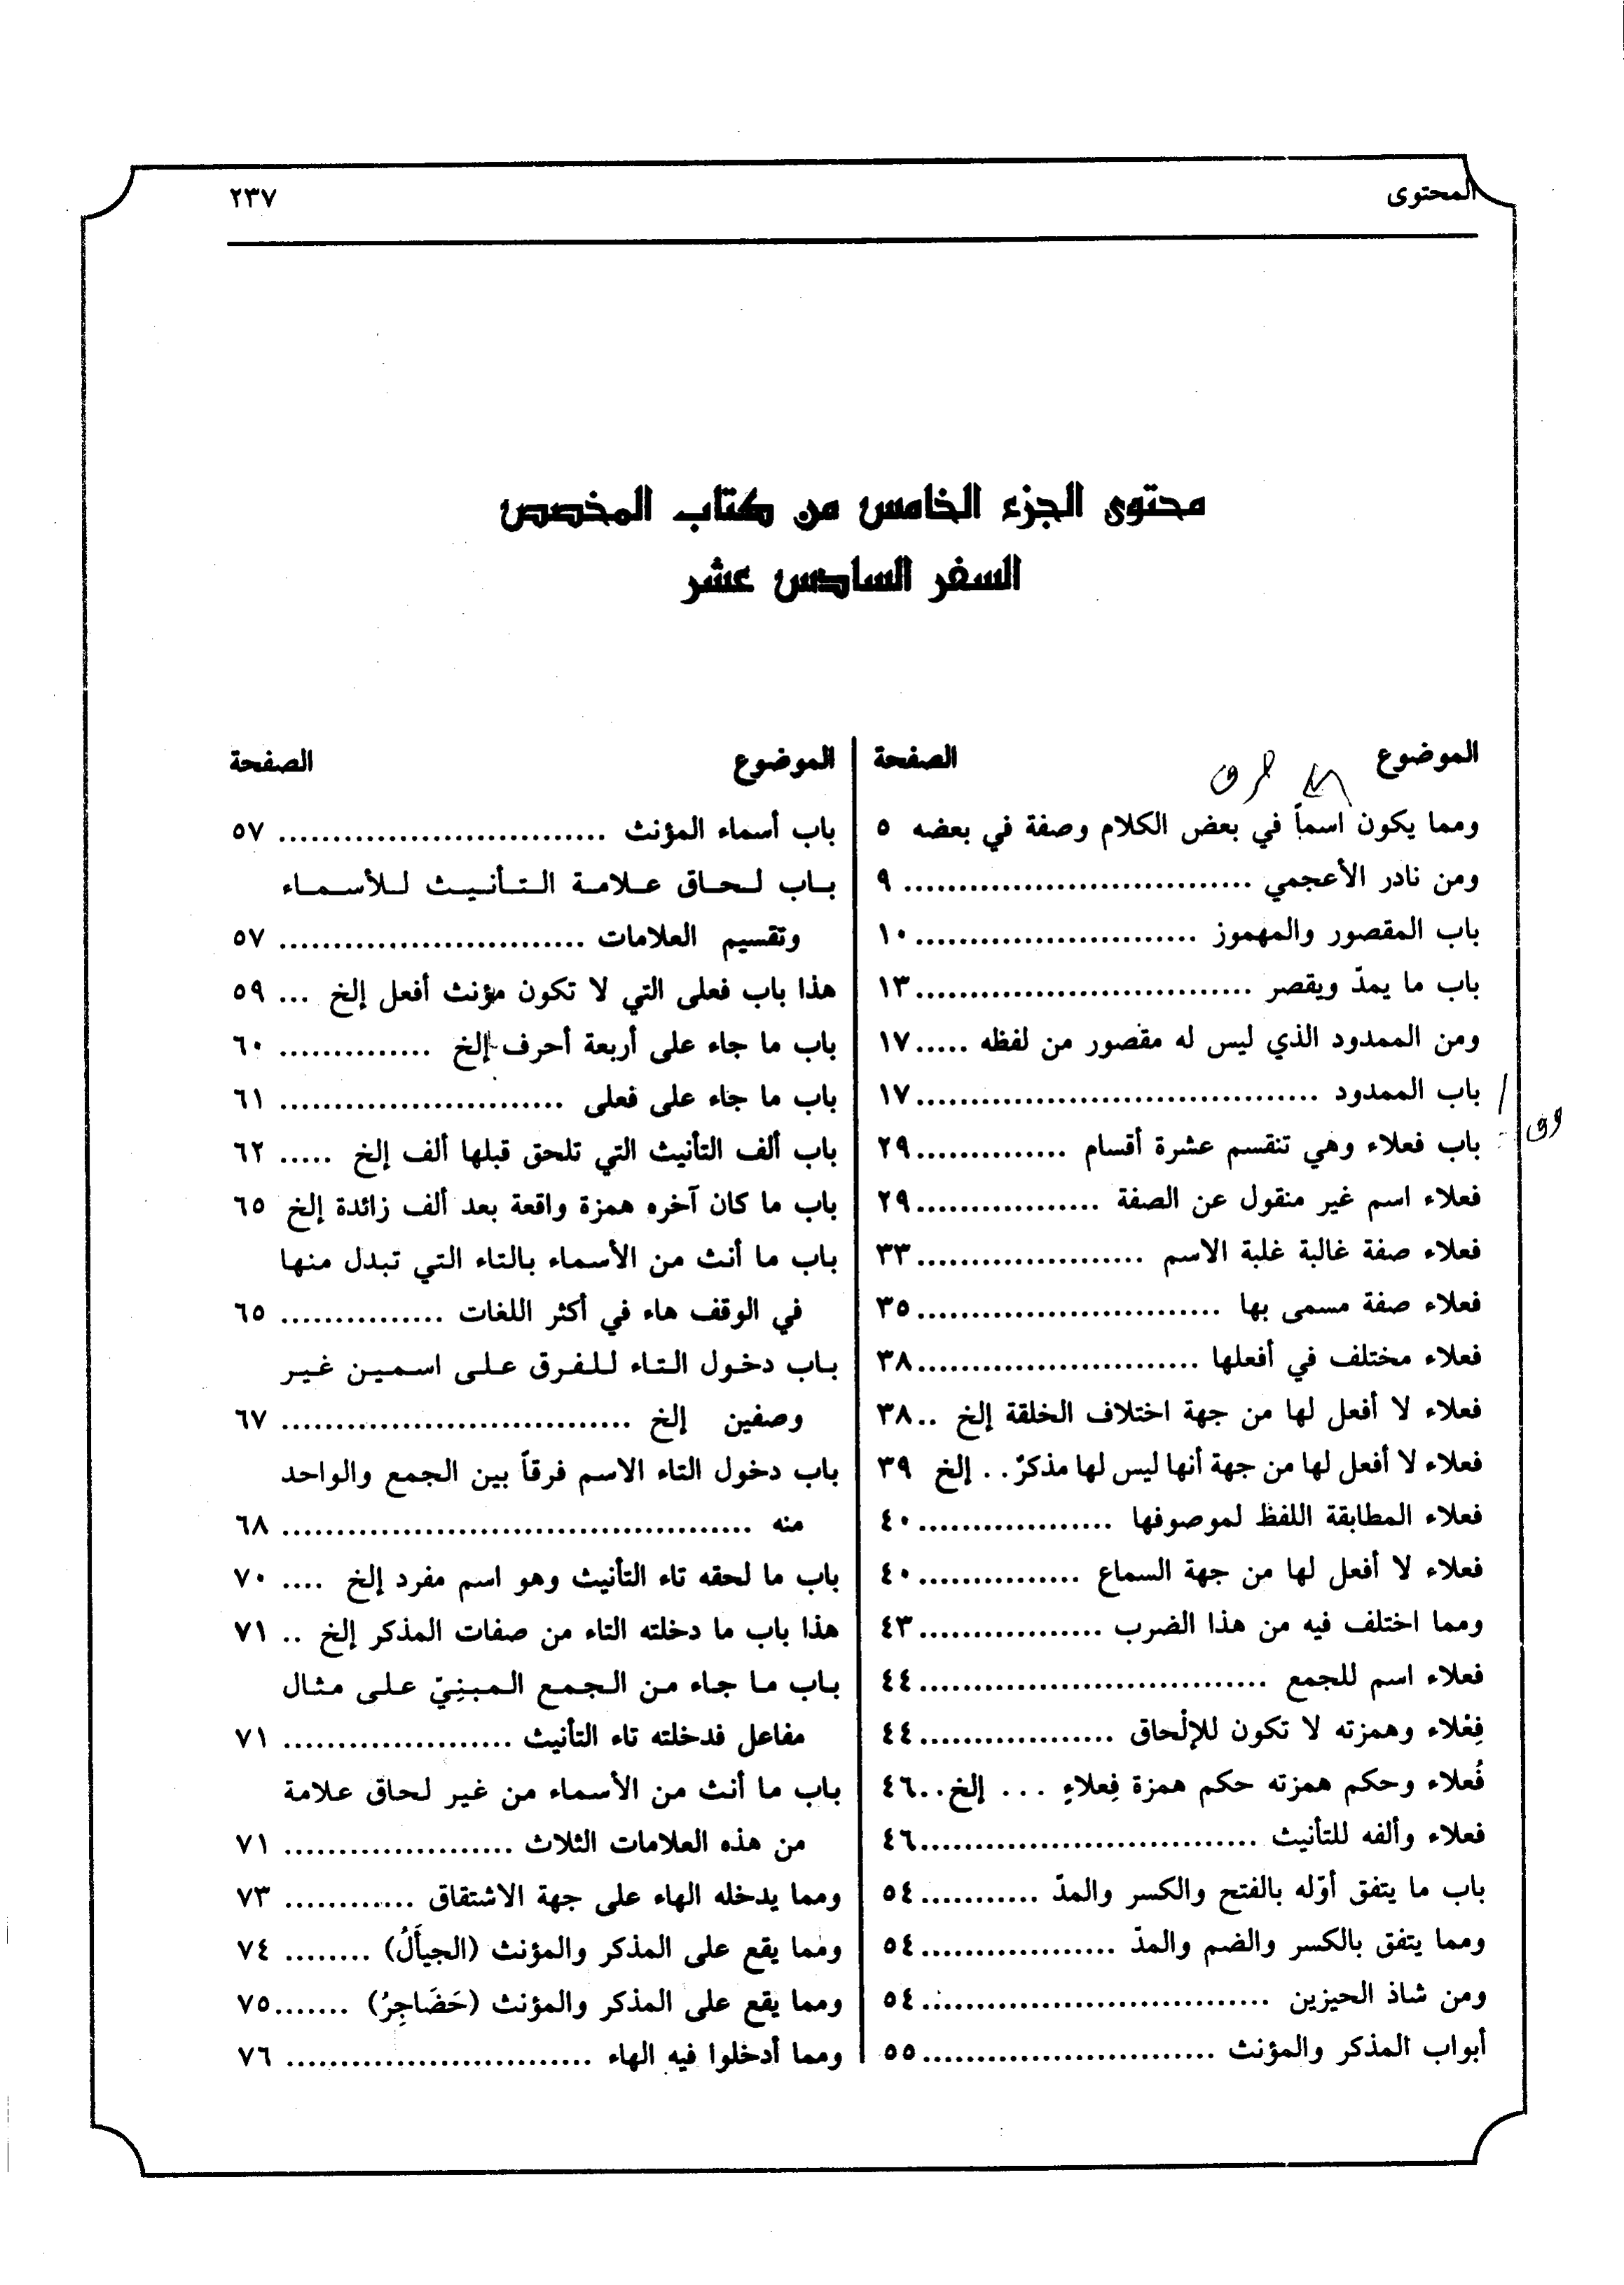 المحتوى ٢٣٧
محتوى الجزء الخامس من كتاب المخصص
السفر السادس عشر
الموضوع الصفحة
ومما يكون اسماً في بعض الكلام وصفة في بعضه ٥
ومن نادر الأعجمي ................................ ٩
باب المقصور والمهموز .......................... ١٠
باب ما يمدّ ويقصر ............................... ١٣
ومن الممدود الذي ليس له مقصور من لفظه ..... ١٧
باب الممدود ..................................... ١٧
باب فعلاء وهي تنقسم عشرة أقسام .............. ٢٩
فعلاء اسم غير منقول عن الصفة ................. ٢٩
فعلاء صفة غالبة غلبة الاسم ..................... ٣٣
فعلاء صفة مسمى بها ............................ ٣٥
فعلاء مختلف في أفعلها .......................... ٣٨
فعلاء لا أفعل لها من جهة اختلاف الخلقة إلخ .. ٣٨
فعلاء لا أفعل لها من جهة أنها ليس لها مذكرٌ . . إلخ ٣٩
فعلاء المطابقة اللفظ لموصوفها .................. ٤٠
فعلاء لا أفعل لها من جهة السماع ............... ٤٠
ومما اختلف فيه من هذا الضرب ................. ٤٣
فعلاء اسم للجمع ................................ ٤٤
فِعْلاء وهمزته لا تكون للإلْحاق .................. ٤٤
فُعلاء وحكم همزته حكم همزة فِعلاءٍ . . . إلخ .. ٤٦
فعلاء وألفه للتأنيث ............................... ٤٦
باب ما يتفق أوّله بالفتح والكسر والمدّ ........... ٥٤
ومما يتفق بالكسر والضم والمدّ .................. ٥٤
ومن شاذ الحيزين ................................ ٥٤
أبواب المذكر والمؤنث ........................... ٥٥
الموضوع الصفحة
باب أسماء المؤنث .............................. ٥٧
باب لحاق علامة التأنيث للأسماء
وتقسيم العلامات ............................ ٥٧
هذا باب فعلى التي لا تكون مؤنث أفعل إلخ ... ٥٩
باب ما جاء على أربعة أحرف إلخ .............. ٦٠
باب ما جاء على فعلى .......................... ٦١
باب ألف التأنيث التي تلحق قبلها ألف إلخ ..... ٦٢
باب ما كان آخره همزة واقعة بعد ألف زائدة إلخ ٦٥
باب ما أنث من الأسماء بالتاء التي تبدل منها
في الوقف هاء في أكثر اللغات ............... ٦٥
باب دخول التاء للفرق على اسمين غير
وصفين إلخ ................................ ٦٧
باب دخول التاء الاسم فرقاً بين الجمع والواحد
منه ........................................... ٦٨
باب ما لحقه تاء التأنيث وهو اسم مفرد إلخ .... ٧٠
هذا باب ما دخلته التاء من صفات المذكر إلخ .. ٧١
باب ما جاء من الجمع المبنِيّ على مثال
مفاعل فدخلته تاء التأنيث ..................... ٧١
باب ما أنث من الأسماء من غير لحاق علامة
من هذه العلامات الثلاث ..................... ٧١
ومما يدخله الهاء على جهة الاشتقاق ............ ٧٣
ومما يقع على المذكر والمؤنث (الجيأَلُ) ........ ٧٤
ومما يقع على المذكر والمؤنث (حَضَاجِرُ) ....... ٧٥
ومما أدخلوا فيه الهاء ............................ ٧٦